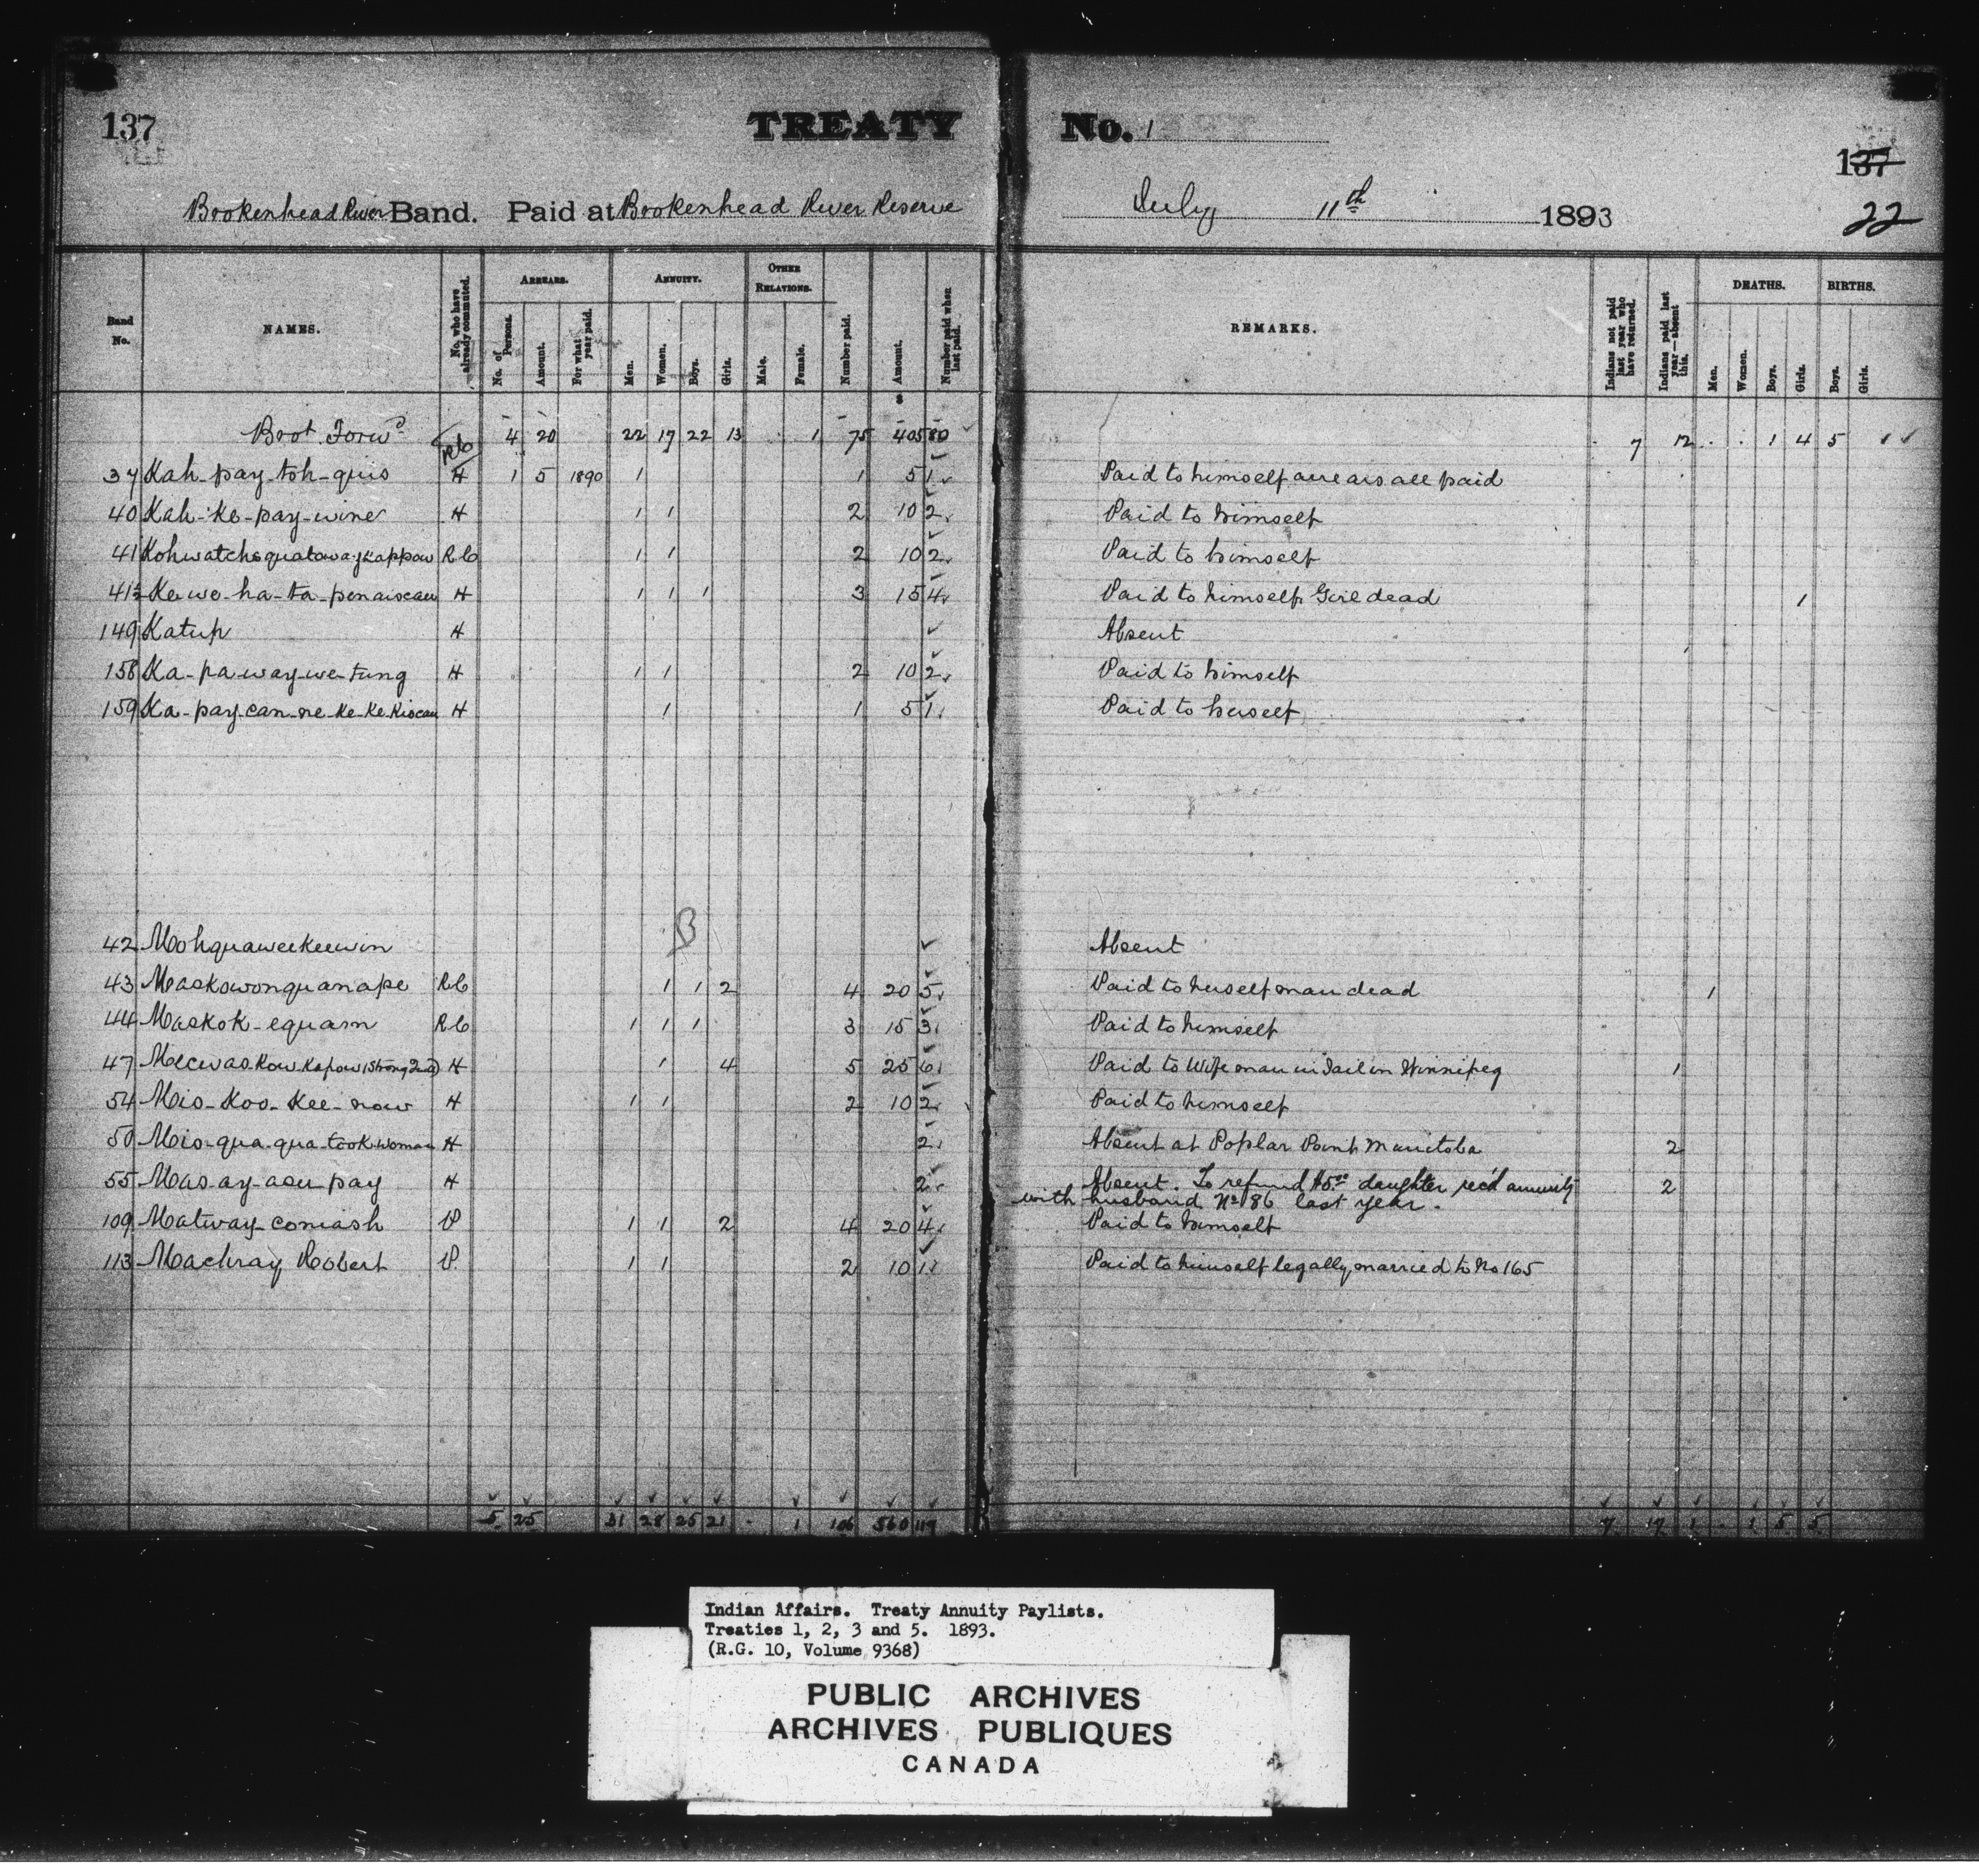 137 TREATY No. 1 137
Brokenhead River Band. Paid at Brokenhead River Reserve July 11th 1893 22
Band No. NAMES. No. who have already commuted. ARREARS. No. of Persons. Amount. For what year paid. ANNUITY. Men. Women. Boys. Girls. OTHER RELATIONS. Male. Female. Number paid. Amount. Number paid when last paid. REMARKS. Indians not paid last year who have returned. Indians paid last year—absent this. DEATHS. Men. Women. Boys. Girls. BIRTHS. Boys. Girls.
$
Brot Forwd 4 20 22 17 22 13 1 75 405 80 7 12 1 4 5
37 Kah-pay-toh-quis H 1 5 1890 1 1 5 1 Paid to himself arrears all paid
40 Kah-ke-pay-wine H 1 1 2 10 2 Paid to himself
41 R C 1 1 2 10 2 Paid to himself
41½ Ke we-ha-ta-penaiseau H 1 1 1 3 15 4 Paid to himself Girl dead 1
149 Katup H Absent
158 Ka-pa-way-we-tung H 1 1 2 10 2 Paid to himself
159 Ka-pay-can-ne-ke-ke-kiscau H 1 1 5 1 Paid to herself
B
42 Mohquaweekeewin Absent
43 Maskowonquanape R C 1 1 2 4 20 5 Paid to herself man dead 1
44 Maskok-equam R C 1 1 1 3 15 3 Paid to himself
47 Mecwas-kow-kapow H 1 4 5 25 6 Paid to Wife man in Jail in Winnipeg 1
54 Mis-koo-kee-now H 1 1 2 10 2 Paid to himself
50 Mis-qua-qua-took-woman H 2 Absent at Poplar Point Manitoba 2
55 Mas-ay-asu-pay H 2 Absent. To refund $5.00 daughter rec'd annuity 2
with husband No 86 last year.
109 Matway-comash P 1 1 2 4 20 4 Paid to himself
113 Machray Robert P 1 1 2 10 1 Paid to himself legally married to No 165
5 25 31 28 25 21 1 106 560 119 7 17 1 1 5 5
Indian Affairs. Treaty Annuity Paylists.
Treaties 1, 2, 3 and 5. 1893.
(R.G. 10, Volume 9368)
PUBLIC ARCHIVES
ARCHIVES PUBLIQUES
CANADA